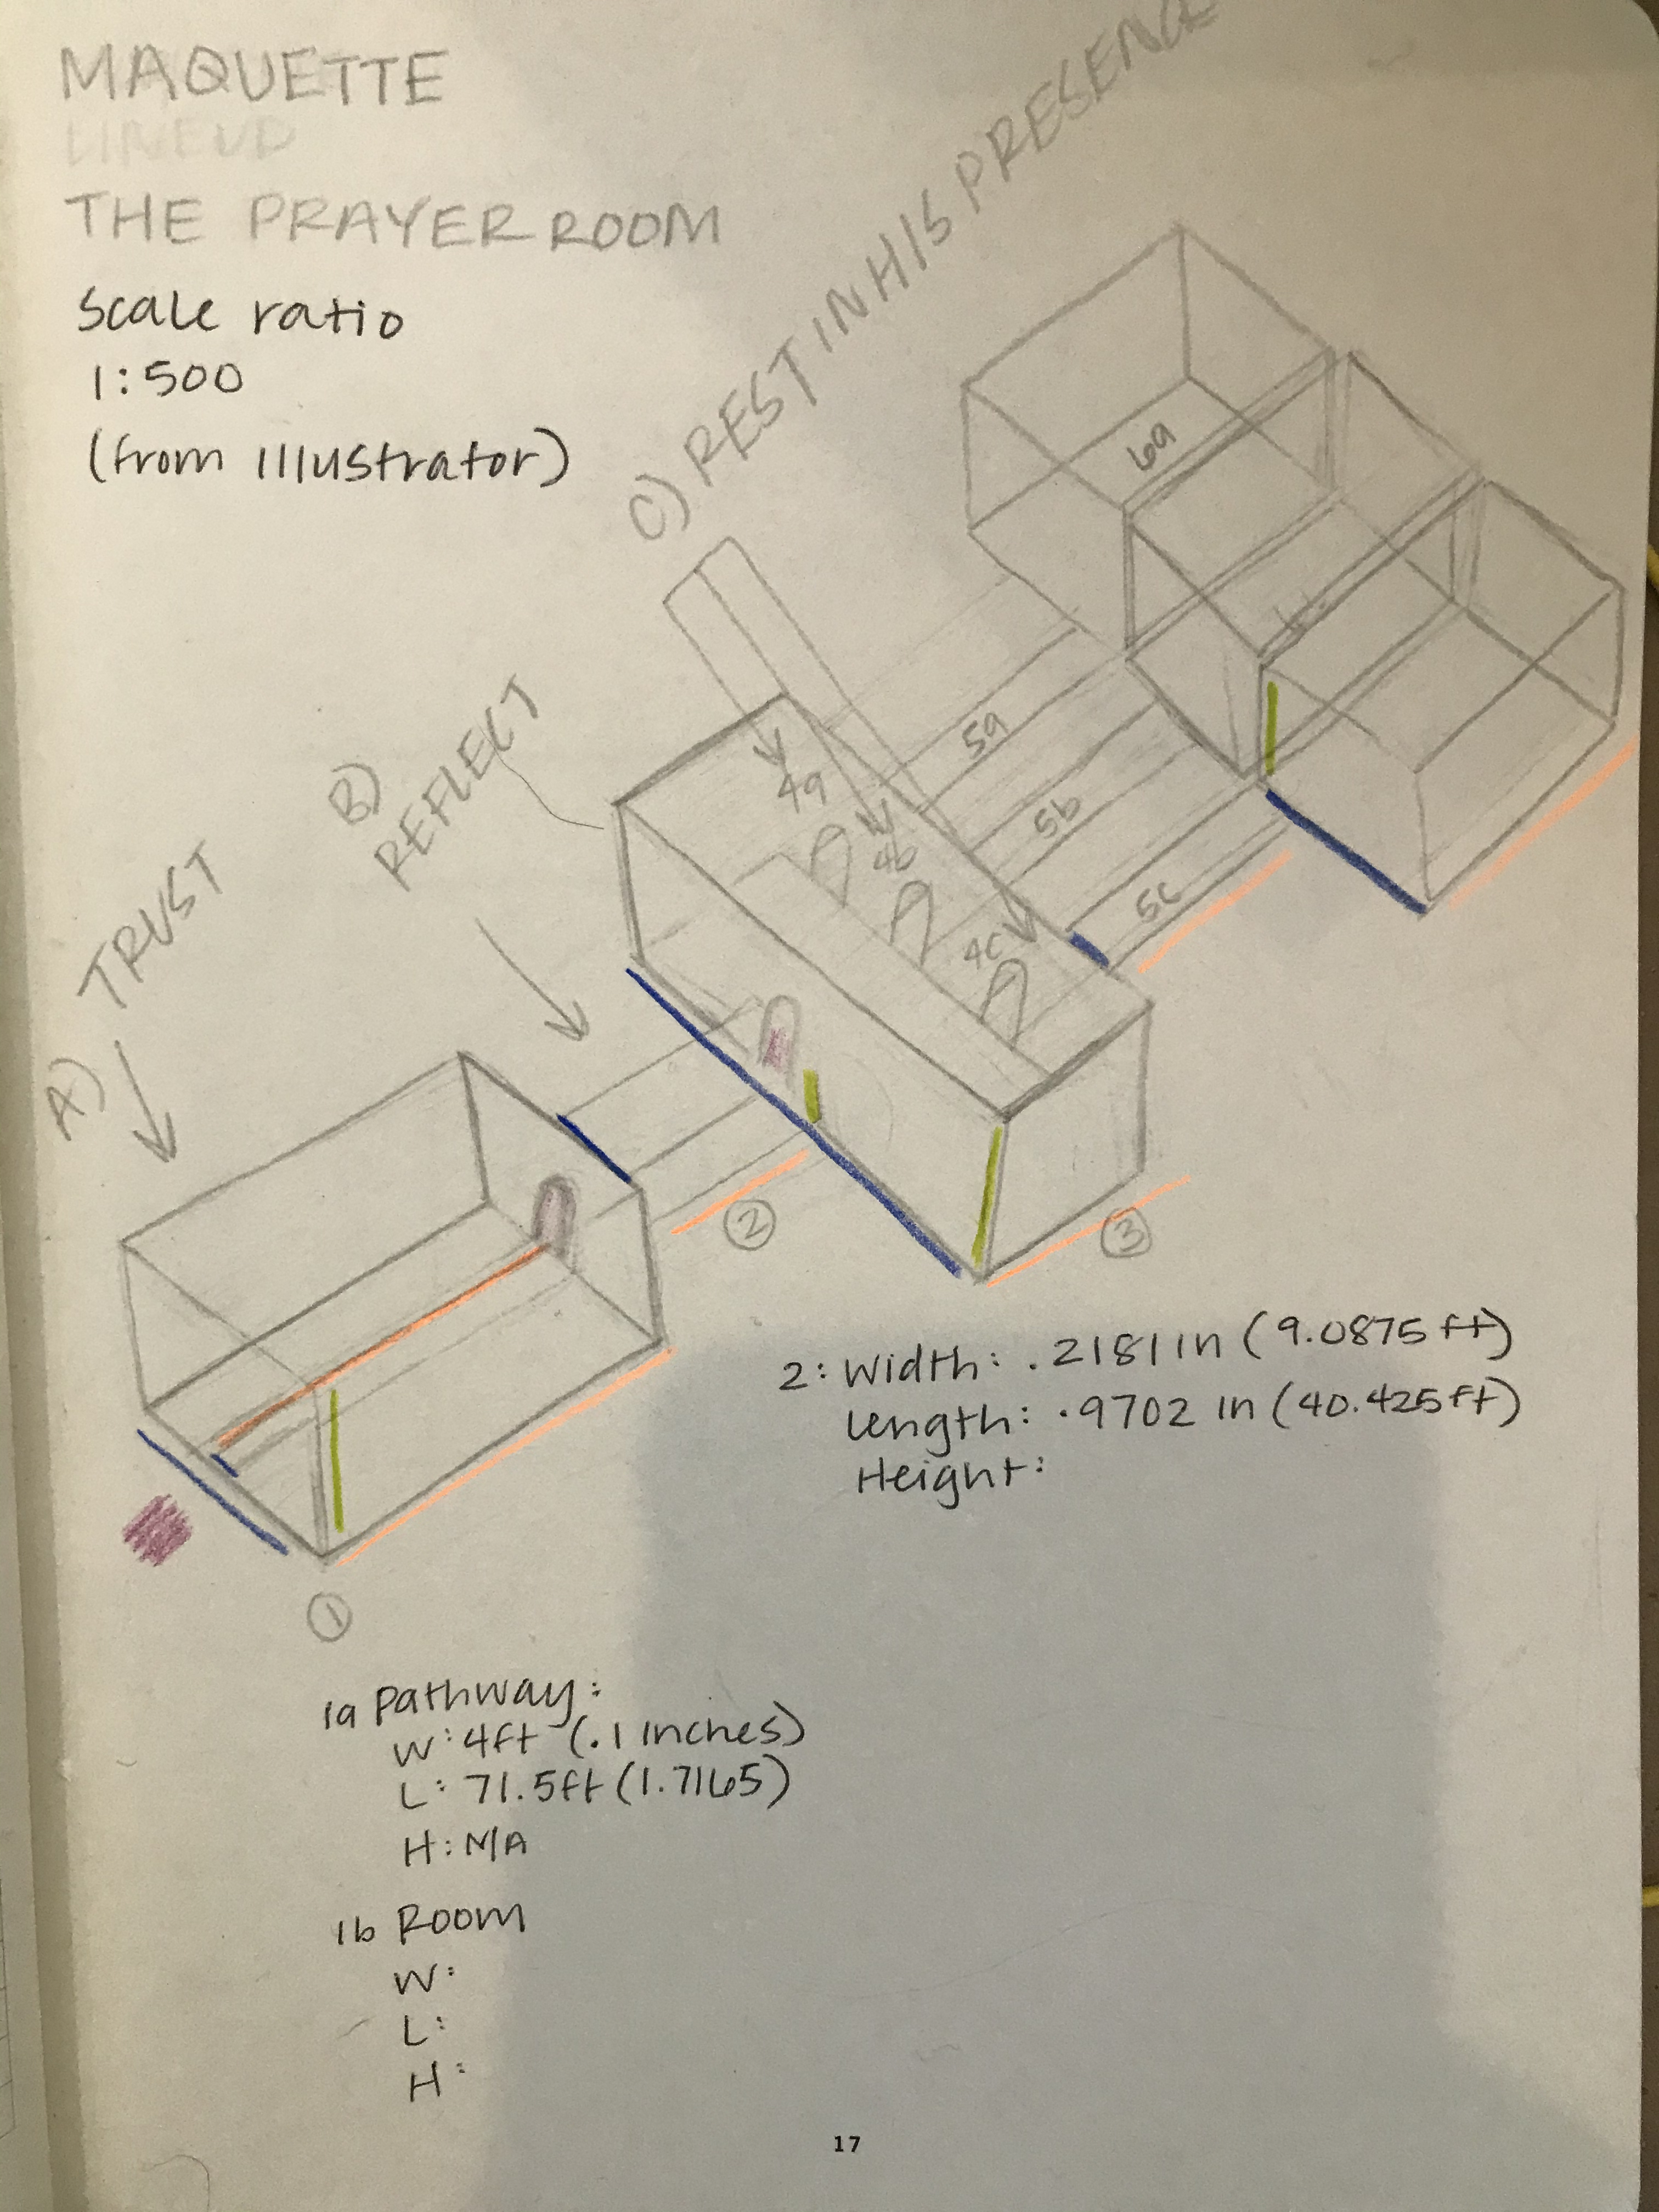 MAQUETTE
LINEUP
THE PRAYER ROOM
Scale ratio
1:500
(from Illustrator)
C) REST IN HIS PRESENCE
6a
B)
REFLECT
5a
4a
5b
4b
5c
4c
A) TRUST
2
3
2: Width: .2181 in (9.0875 ft)
Length: .9702 in (40.425 ft)
Height:
1
1a Pathway:
W: 4ft (.1 inches)
L: 71.5ft (1.7165)
H: N/A
1b Room
W:
L:
H:
17